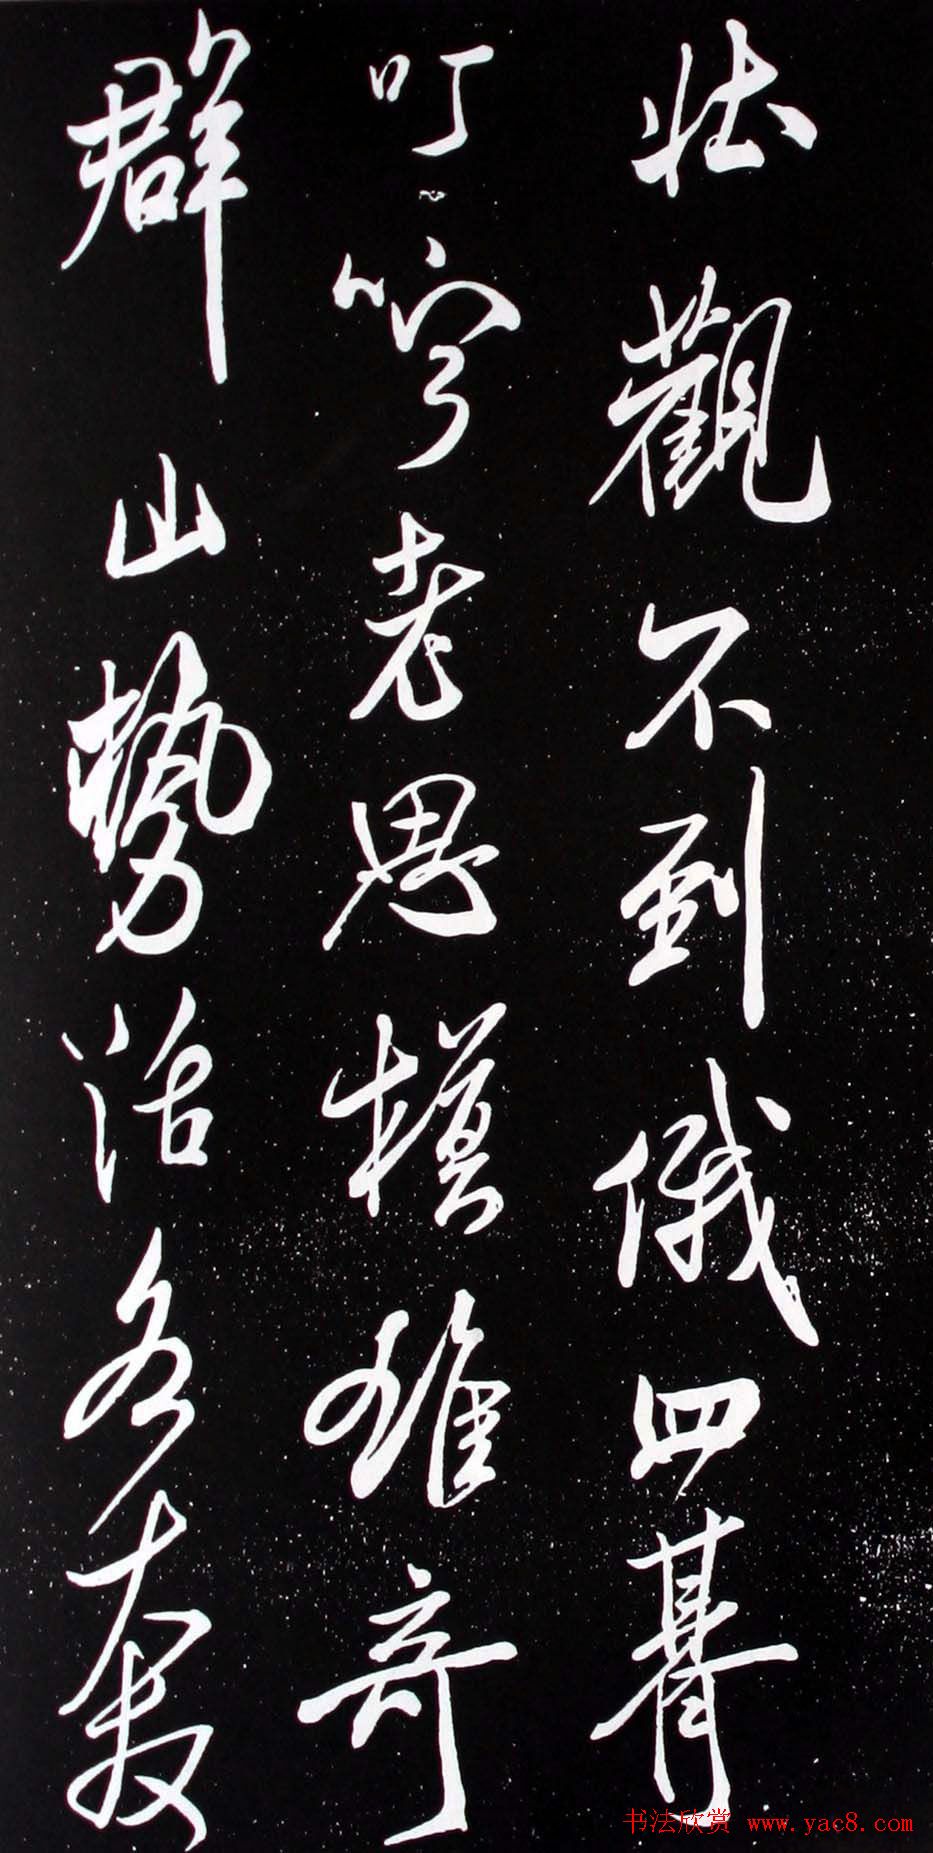 壮觀不到俄四朞
叮嚀老愚模雄奇
群山勢活各
书法欣赏 www.yac8.com